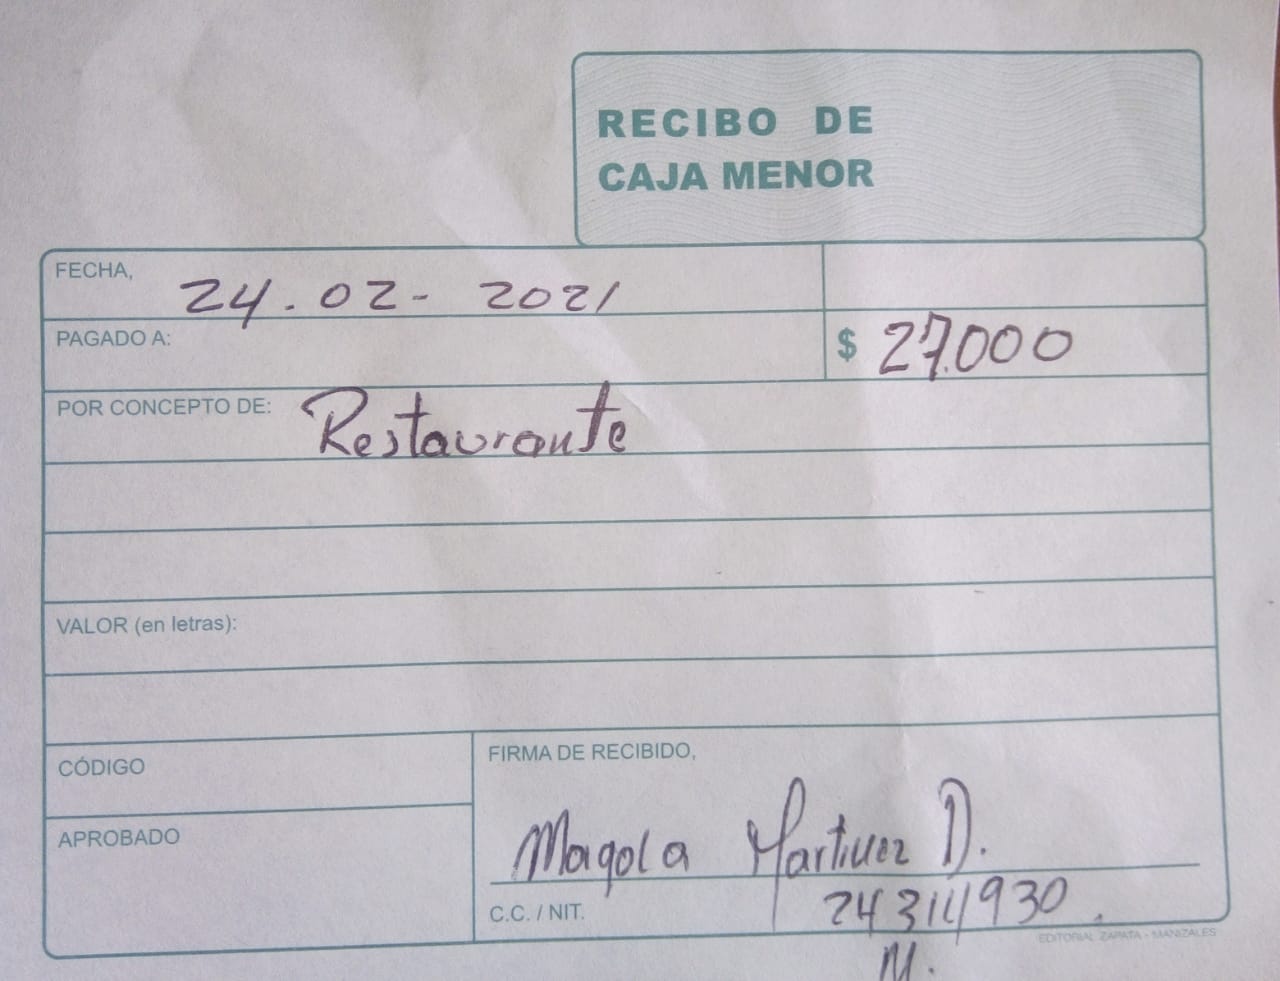 RECIBO DE
CAJA MENOR
FECHA, 24.02-2021
PAGADO A:
$ 27.000
POR CONCEPTO DE: Restaurante
VALOR (en letras):
CÓDIGO
APROBADO
FIRMA DE RECIBIDO,
Magola Martinez D.
C.C. / NIT.
M.
EDITORIAL ZAPATA - MANIZALES